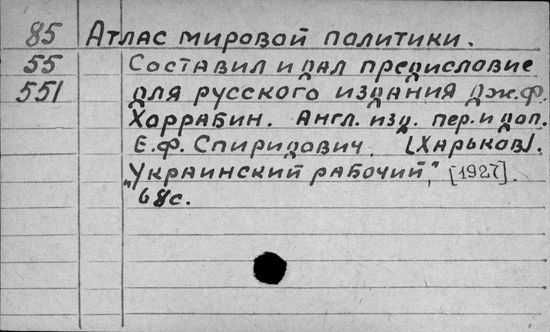 85 Атлас мировой политики.
55 Составил и дал предисловие
551 для русского издания Дж.Ф.
Хоррабин. Англ. изд. пер. и доп.
Е.Ф. Спиридович. (Харьков).
"Украинский рабочий", [1927].
68с.